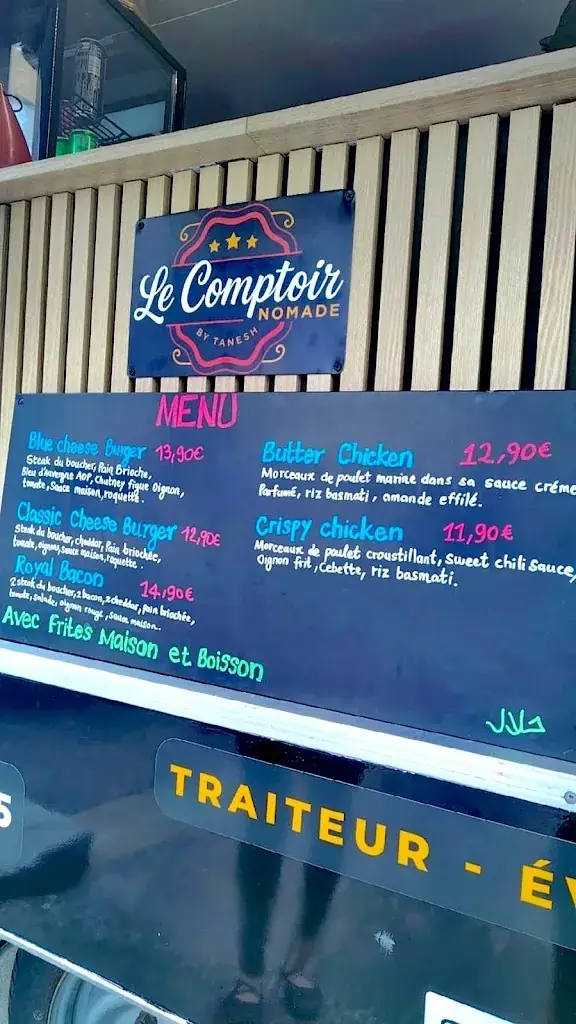 Le Comptoir
NOMADE
BY TANESH
MENU
Blue cheese Burger 13,90€
Steak du boucher, Pain Brioche,
Bleu d'auvergne AOP, Chutney figue Oignon,
tomate, Sauce maison, roquette.
Classic Cheese Burger 12,90€
Steak du boucher, cheddar, Pain briochée,
tomate, oignons, sauce maison, roquette.
Royal Bacon 14,90€
2 steak du boucher, 2 bacon, 2 cheddar, pain briochée,
tomate, salade, oignon rouge, sauce maison.
Avec Frites Maison et Boisson
Butter Chicken 12,90€
Morceaux de poulet mariné dans sa sauce créme
Parfumé, riz basmati, amande effilé.
Crispy chicken 11,90€
Morceaux de poulet croustillant, Sweet chili sauce,
Oignon frit, Cebette, riz basmati.
حلال
5
TRAITEUR - ÉV